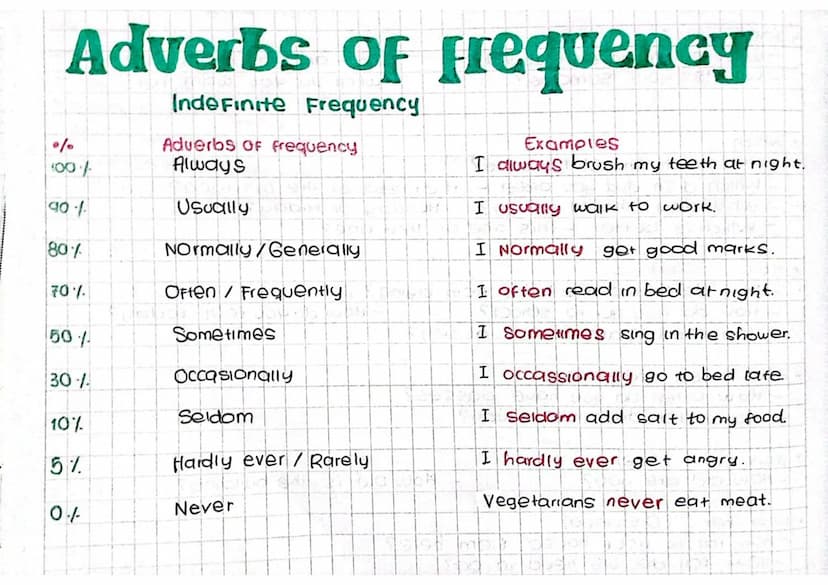 Adverbs of Frequency
Indefinite Frequency
% Adverbs of frequency Examples
100% Always I always brush my teeth at night.
90% Usually I usually walk to work.
80% Normally / Generally I normally get good marks.
70% Often / Frequently I often read in bed at night.
50% Sometimes I sometimes sing in the shower.
30% Occasionally I occassionally go to bed late
10% Seldom I seldom add salt to my food.
5% Hardly ever / Rarely I hardly ever get angry.
0% Never Vegetarians never eat meat.